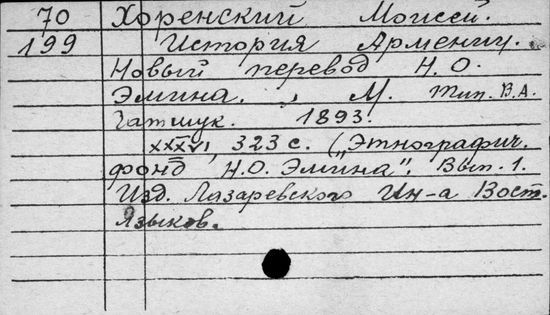 70 Хоренский Моисей.
199 История Армении.
Новый перевод Н.О.
Эмина., М. тип. В.А.
Гатцук. 1893.
XXXVI, 323 с. („Этнографич.
фонд Н.О. Эмина". Вып. 1.
Изд. Лазаревского Ин-а Вост.
Языков.